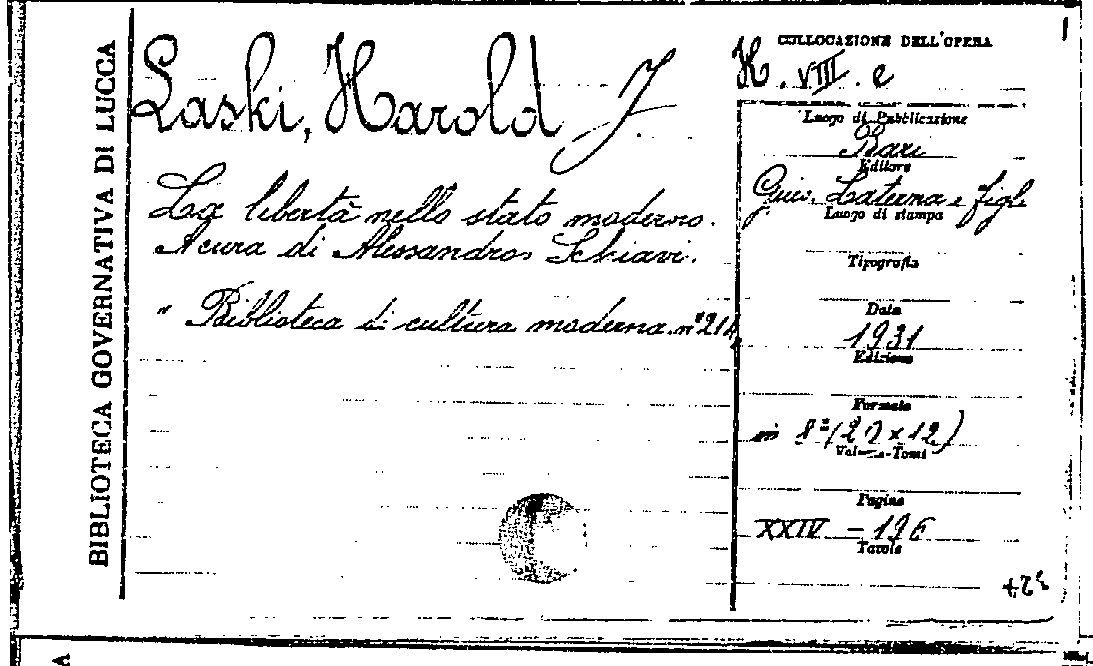 BIBLIOTECA GOVERNATIVA DI LUCCA
Laski, Harold J.
La libertà nello stato moderno.
A cura di Alessandro Schiavi.
" Biblioteca di cultura moderna. n°214
COLLOCAZIONE DELL'OPERA
H. VIII. e
Luogo di Pubblicazione
Bari
Editore
Gius. Laterza e figli
Luogo di stampa
Tipografia
Data
1931
Edizione
Formato
in 8°(20 x 12)
Volume-Tomi
Pagine
XXIV - 196
Tavole
A